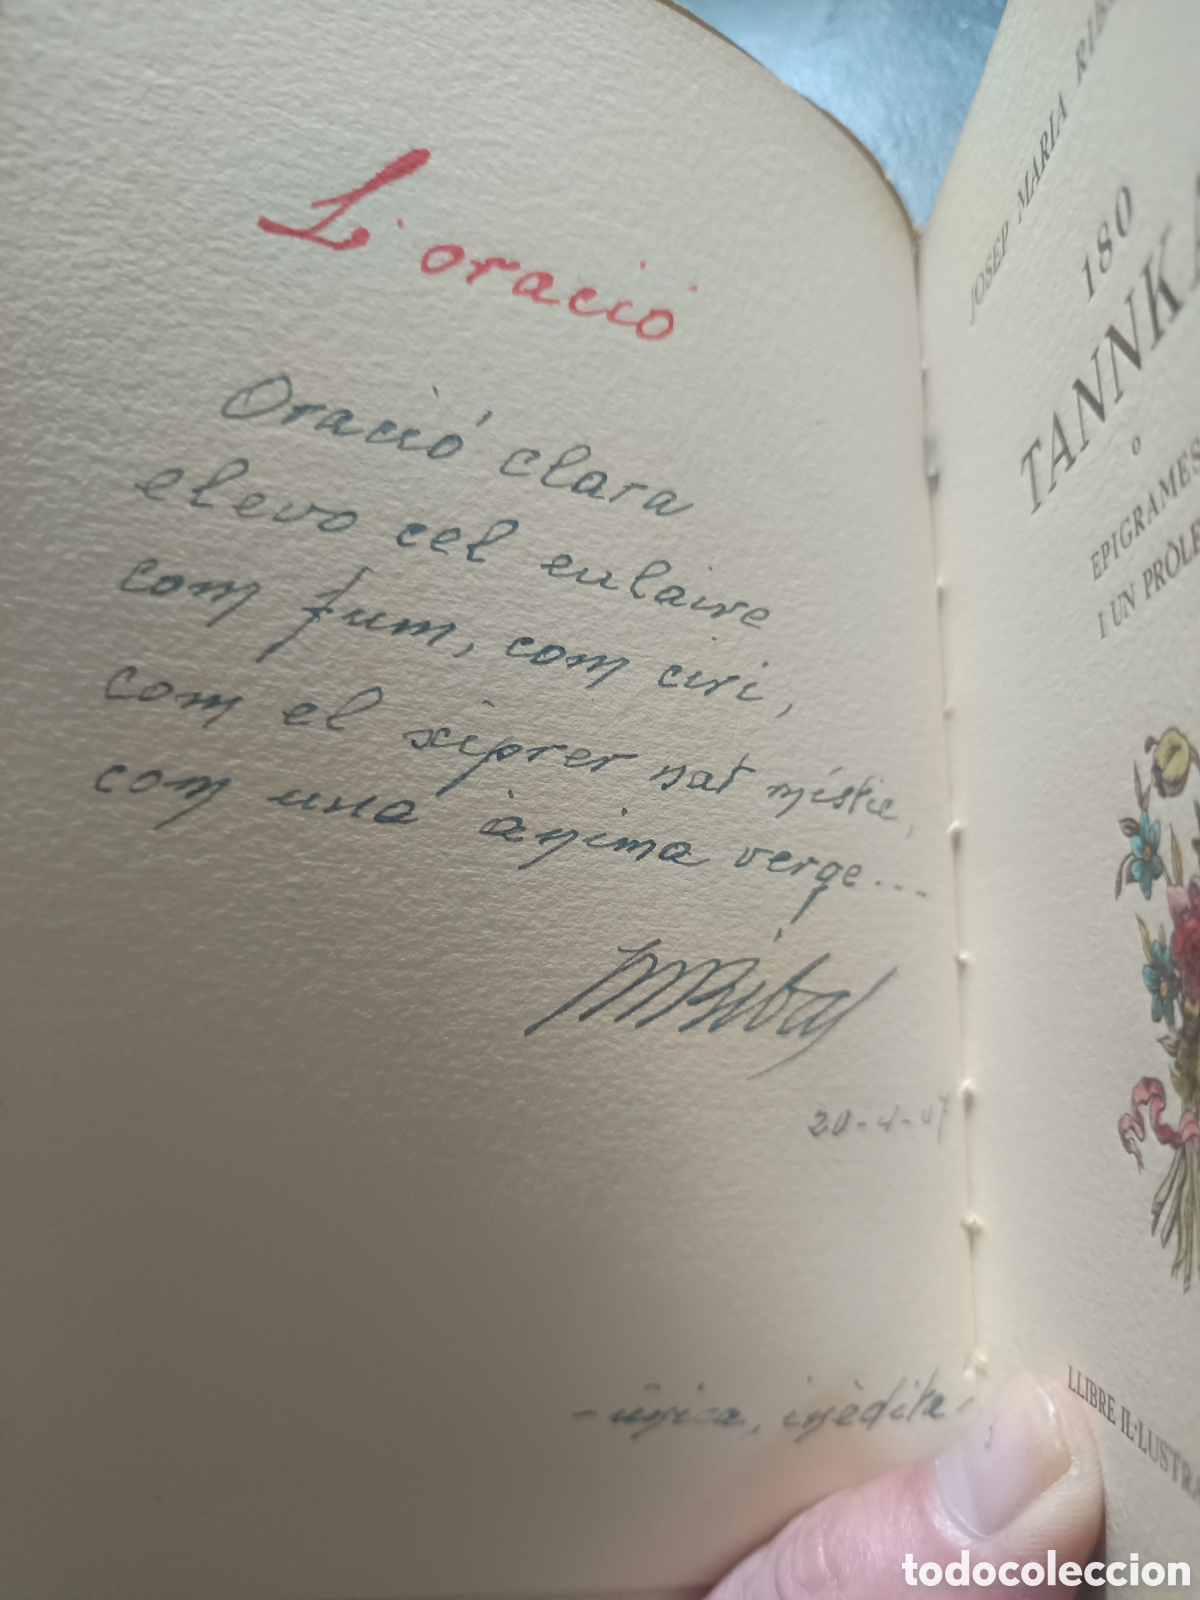 L'oració
Oració clara
elevo cel enlaire
com fum, com ciri,
com el xiprer nat místic,
com una ànima verge...
MRibas
20-4-47
- única, inèdita -
JOSEP MARIA
180
TANNKA
O
EPIGRAMES
I UN PRÒLE
LLIBRE IL·LUSTRA
todocoleccion